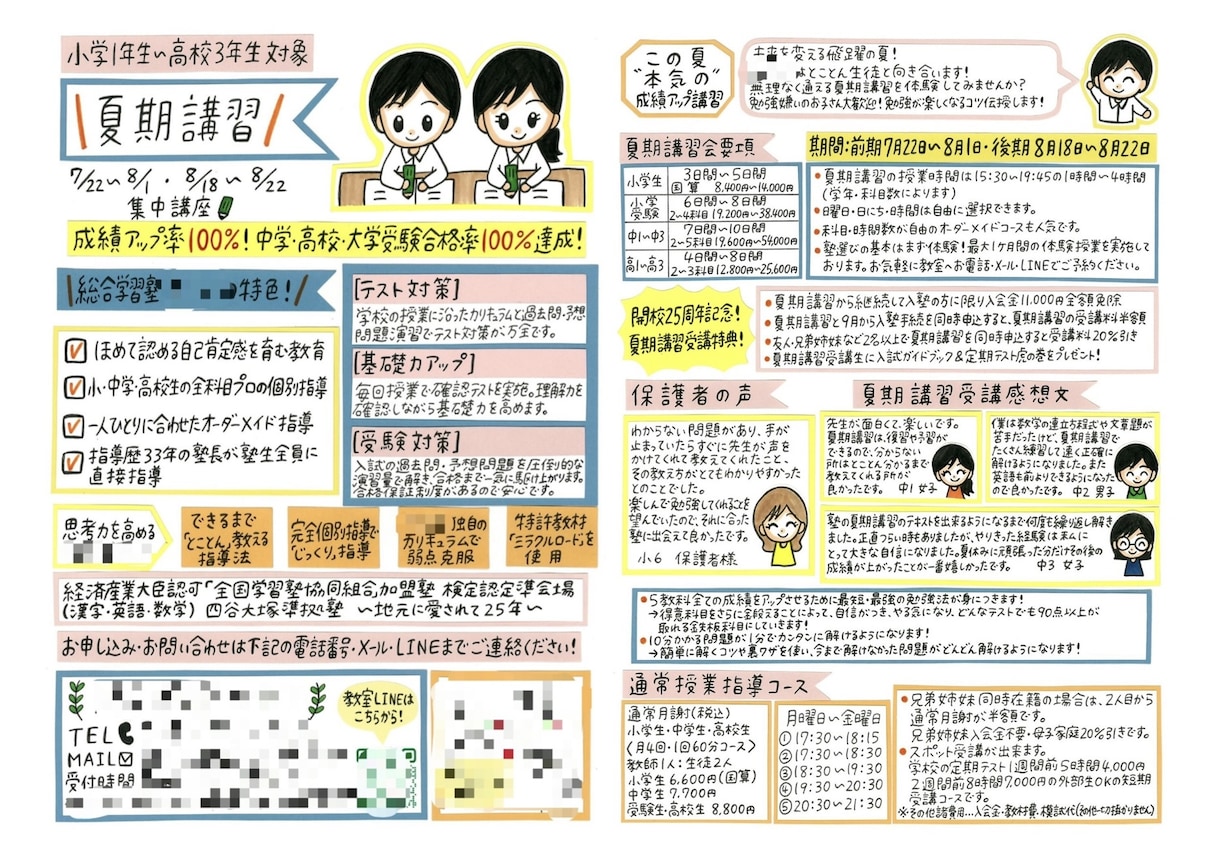 小学1年生~高校3年生対象
夏期講習
7/22~8/1・8/18~8/22
集中講座
成績アップ率100%!中学・高校・大学受験合格率100%達成!
総合学習塾
特色!
ほめて認める自己肯定感を育む教育
小・中学・高校生の全科目プロの個別指導
一人ひとりに合わせたオーダーメイド指導
指導歴33年の塾長が塾生全員に
直接指導
[テスト対策]
学校の授業に沿ったカリキュラムと過去問・予想
問題演習でテスト対策が万全です。
[基礎力アップ]
毎回授業で確認テストを実施。理解力を
確認しながら基礎力を高めます。
[受験対策]
入試の過去問・予想問題を圧倒的な
演習量で解き、合格まで一気に駆け上がります。
合格保証制度があるので安心です。
思考力を高める
できるまで
「とことん」教える
指導法
完全個別指導で
「じっくり」指導
独自の
カリキュラムで
弱点克服
特許教材
「ミラクルロード」を
使用
経済産業大臣認可「全国学習塾協同組合」加盟塾 検定認定準会場
(漢字・英語・数学) 四谷大塚準拠塾 ~地元に愛されて25年~
お申し込み・お問い合わせは下記の電話番号・メール・LINEまでご連絡ください!
TEL
MAIL
受付時間
教室LINEは
こちらから!
この夏
"本気の"
成績アップ講習
未来を変える飛躍の夏!
はとことん生徒と向き合います!
無理なく通える夏期講習を体験してみませんか?
勉強嫌いのお子さん大歓迎!勉強が楽しくなるコツ伝授します!
夏期講習会要項
期間:前期7月22日~8月1日・後期8月18日~8月22日
小学生
3日間~5日間
国算 8,400円~14,000円
小学
受験
6日間~8日間
2~4科目 19,200円~38,400円
中1~中3
7日間~10日間
2~5科目 19,600円~54,000円
高1~高3
4日間~8日間
2~3科目 12,800円~25,600円
●夏期講習の授業時間は15:30~19:45の1時間~4時間
(学年・科目数によります)
●曜日・日にち・時間は自由に選択できます。
●科目・時間数が自由のオーダーメイドコースも人気です。
●塾選びの基本はまず体験!最大1ヶ月間の体験授業を実施して
おります。お気軽に教室へお電話・メール・LINEでご予約ください。
開校25周年記念!
夏期講習受講特典!
●夏期講習から継続して入塾の方に限り入会金11,000円全額免除
●夏期講習と9月から入塾手続を同時申込すると、夏期講習の受講料半額
●友人・兄弟姉妹など2名以上で夏期講習を同時申請すると受講料20%引き
●夏期講習受講生に入試ガイドブック&定期テスト虎の巻をプレゼント!
保護者の声
わからない問題があり、手が
止まっていたらすぐに先生が声を
かけてくれて教えてくれたこと、
その教え方がとてもわかりやすかった
とのことでした。
楽しんで勉強してくれることを
望んでいたので、それに合った
塾に出会えて良かったです。
小6 保護者様
夏期講習受講感想文
先生が面白くて、楽しいです。
夏期講習は、復習や予習が
できるので、分からない
所はとことん分かるまで
教えてくれる所が
良かったです。 中1 女子
僕は数学の連立方程式や文章題が
苦手だったけど、夏期講習で
たくさん練習して速く正確に
解けるようになりました。また
英語も前よりできるようになった
ので良かったです。 中2 男子
塾の夏期講習のテキストを出来るようになるまで何度も繰り返し解き
ました。正直つらい時もありましたが、やりきった経験は本当に
とって大きな自信になりました。夏休みに頑張った分だけその後の
成績が上がったことが一番嬉しかったです。 中3 女子
●5教科全ての成績をアップさせるために最短・最強の勉強法が身につきます!
→得意科目をさらに金絞えることによって、自信がつき、やる気になり、どんなテストでも90点以上が
取れる鉄板科目にしていきます!
●10分かかる問題が1分で・カンタンに解けるようになります!
→簡単に解くコツや裏ワザを使い、今まで解けなかった問題がどんどん解けるようになります!
通常授業指導コース
通常月謝(税込)
小学生・中学生・高校生
〈月4回・1回60分コース〉
教師1人:生徒2人
小学生 6,600円(国算)
中学生 7,700円
受験生・高校生 8,800円
月曜日~金曜日
①17:30~18:15
②17:30~18:30
③18:30~19:30
④19:30~20:30
⑤20:30~21:30
●兄弟姉妹同時在籍の場合は、2人目から
通常月謝が半額です。
兄弟姉妹入会金不要・母子家庭20%引きです。
●スポット受講が出来ます。
学校の定期テスト1週間前5時間4,000円
2週間前8時間7,000円の外部生OKの短期
受講コースです。
※その他諸費用…入会金・教材費・模試代(その他一切掛かりません)